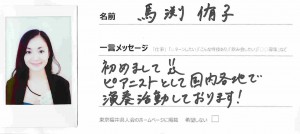 名前 馬渕 侑子
一言メッセージ
初めまして!!
ピアニストとして国内各地で
演奏活動しております!
東京福井県人会のホームページに掲載 希望しない